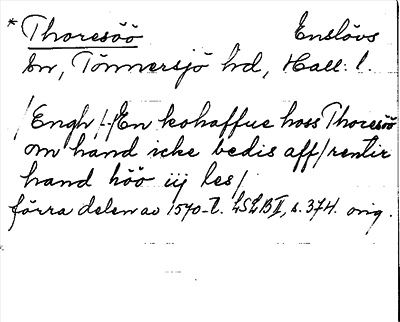 * Thoresöö Enslövs
sn, Tönnersjö hd, Hall. l.
/Engh/-/En kohaffue hoss Thoresöö
om hand icke bedis aff/rentir
hand höö iij les/
förra delen av 1540-t. LSLB II, s. 374. orig.